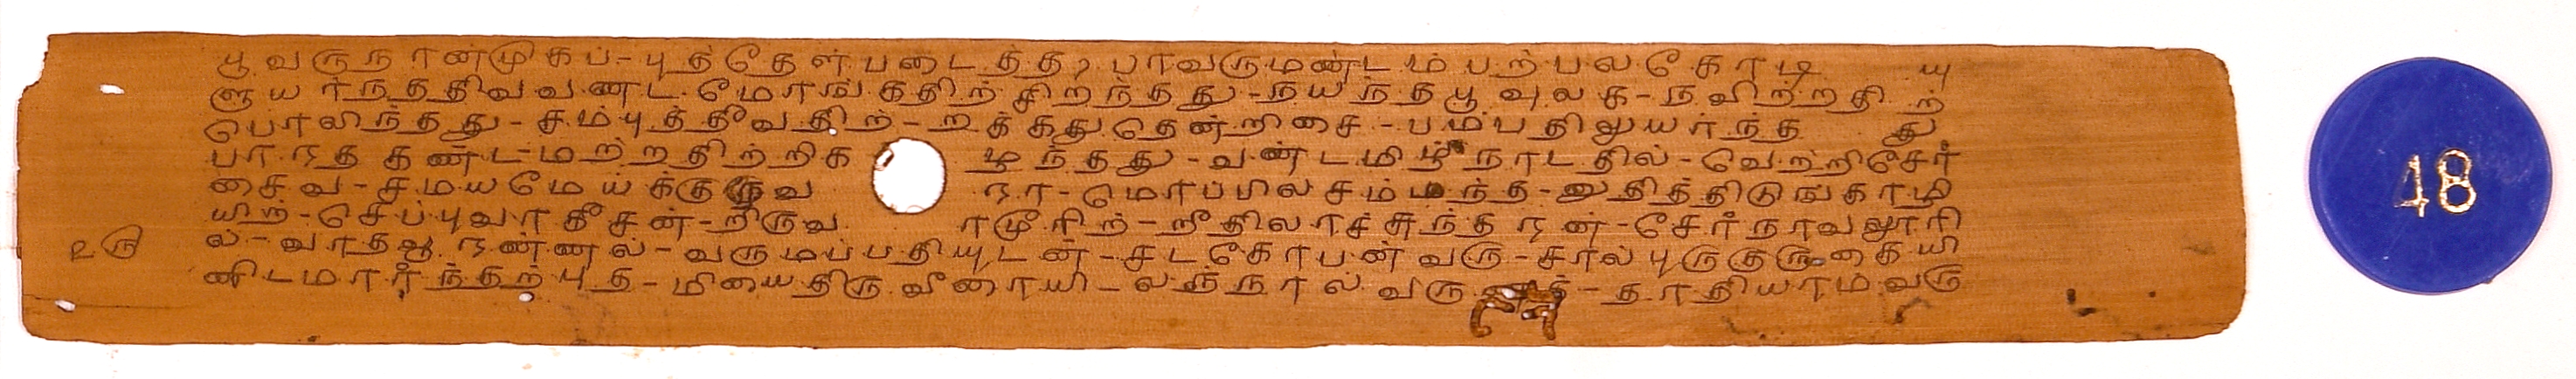 பூவருநான்முகப்-புத்தேள்படைத்த, பாவருமண்டம் பற்பலகோடி யு
ளுயர்ந்ததிவ்வண்ட மோங்கதிற்சிறந்தது-நயந்தபூவுலக-நவிற்றதிற்
பொலிந்தது-சம்புத்தீவதிற்-றக்கதுதென்றிசை-பம்பதிலுயர்ந்த து
பாரத கண்டமற்றதிற்றிக ழ்ந்தது-வண்டமிழ் நாடதில்-வெற்றிசேர்
சைவ-சமயமேய்க்குருவ ரா-மொப்பிலசம்மந்த-னுதித்திடுங்காழி
யிற்-செப்புவாகீசன்-றிருவ ாமூரிற்-றீதிலாச்சுந்தரன்-சேர்நாவலூரி
௨௫ ல்-வாதவூ ரண்ணல்-வருமப்பதியுடன்-சடகோபன் வரு-சால்புகுருகையி
னிடமார்ந்தற்புத-மியைதிரு வீரையி-லந்நூல் வரு தாதியாம்வரு
48